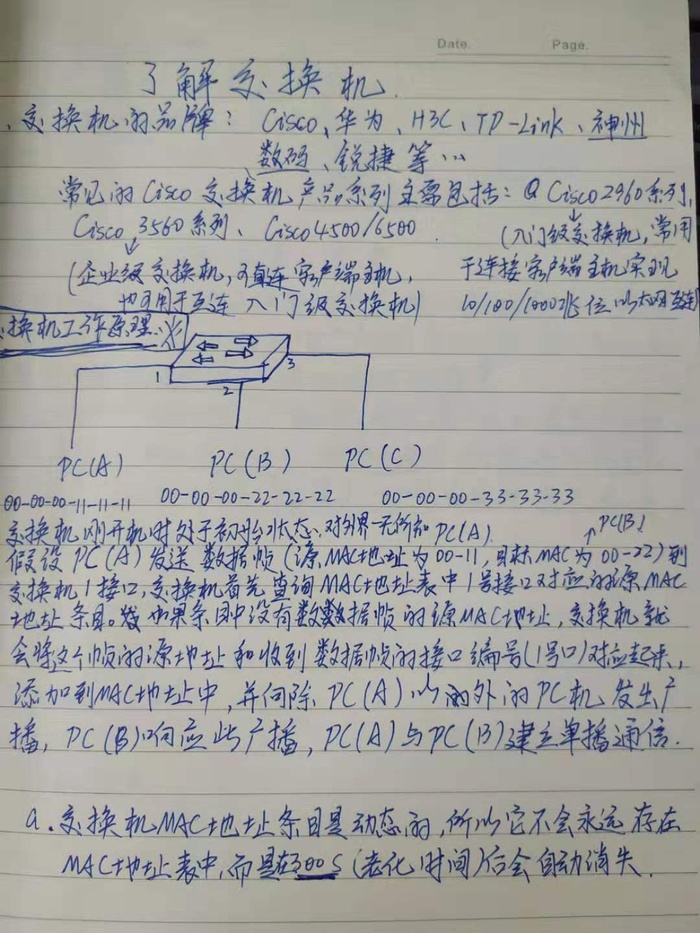 Date. Page.
了解交换机.
、交换机的品牌: Cisco、华为、H3C、TP-Link、神州
数码、锐捷等…
常见的Cisco交换机产品系列主要包括: Cisco2960系列,
Cisco 3560系列、Cisco4500/6500.
(入门级交换机,常用
(企业级交换机,可直连客户端主机,
于连接客户端主机实现
也可用于互连入门级交换机)
10/100/1000兆位以太网互连)
换机工作原理:※
1 2 3
PC(A) PC(B) PC(C)
00-00-00-11-11-11 00-00-00-22-22-22 00-00-00-33-33-33
交换机刚开机时处于初始状态、对外界一无所知 PC(A). PC(B)
假设PC(A)发送数据帧(源MAC地址为00-11,目标MAC为00-22)到
交换机1接口,交换机首先查询MAC地址表中1号接口对应的源MAC
地址条目。如果条目中没有数据帧的源MAC地址,交换机就
会将这个帧的源地址和收到数据帧的接口编号(1号口)对应起来,
添加到MAC地址中,并向除PC(A)以的外的PC机发出广
播,PC(B)响应此广播,PC(A)与PC(B)建立单播通信.
a.交换机MAC地址条目是动态的,所以它不会永远存在
MAC地址表中,而是在300s(老化时间)后会自动消失.